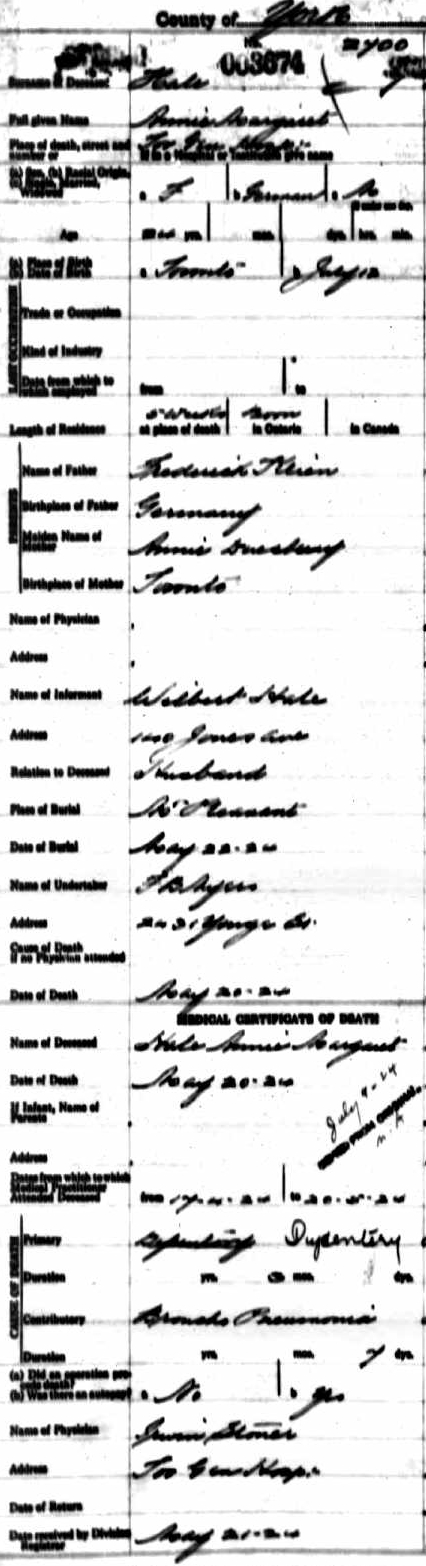 County of York
No. 2400
003674
Surname of Deceased Hale
Full given Name Annie Margaret
Place of death, street and number or Tor Gen Hosp.
If in a Hospital or Institution give name
(a) Sex, (b) Racial Origin, (c) Single, Married, Widowed a F b German c M
Age yrs. mos. dys. hrs. min.
(a) Place of Birth (b) Date of Birth a Toronto b July 12
Trade or Occupation
Kind of Industry
Date from which to which employed from to
5 Weeks Born
Length of Residence at place of death in Ontario in Canada
PARENTS
Name of Father Frederick Klein
Birthplace of Father Germany
Maiden Name of Mother Annie Duesbury
Birthplace of Mother Toronto
Name of Physician
Address
Name of Informant Wilbert Hale
Address Jones Ave
Relation to Deceased Husband
Place of Burial Mt Pleasant
Date of Burial May 22-24
Name of Undertaker F B Ayers
Address 2431 Yonge St.
Cause of Death if no Physician attended
Date of Death May 20-24
MEDICAL CERTIFICATE OF DEATH
Name of Deceased Hale Annie Margaret
Date of Death May 20-24
July 9-24
If Infant, Name of Parents
Address
Dates from which to which Medical Practitioner Attended Deceased from 17-4-24 to 20-5-24
CAUSE OF DEATH
Primary Dysentery Dysentery
Duration yrs. 3 mos. dys.
Contributory Broncho Pneumonia
Duration yrs. mos. 7 dys.
(a) Did an operation precede death? (b) Was there an autopsy? a No b Yes
Name of Physician Irwin Stoner
Address Tor Gen Hosp.
Date of Return
Date received by Division Registrar May 21-24